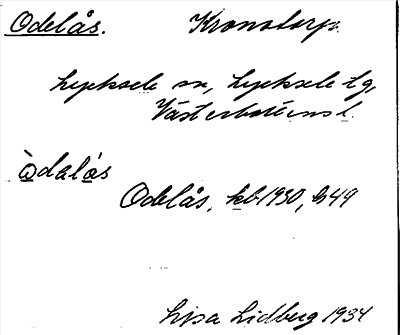 Odelås. Kronotorp.
Lycksele sn, Lycksele lg,
Västerbottens l.
òdalås
Odelås, kb 1930, h49
Lisa Lidberg 1934